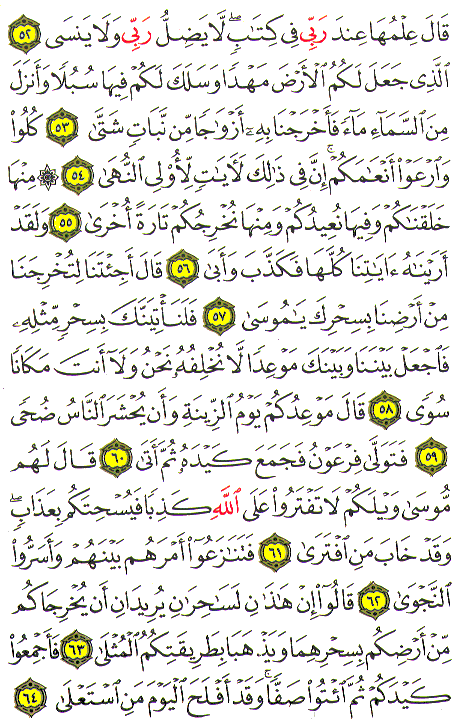 قَالَ عِلْمُهَا عِندَ رَبِّي فِي كِتَٰبٍۖ لَّا يَضِلُّ رَبِّي وَلَا يَنسَى ٥٢
ٱلَّذِي جَعَلَ لَكُمُ ٱلْأَرْضَ مَهْدًا وَسَلَكَ لَكُمْ فِيهَا سُبُلًا وَأَنزَلَ
مِنَ ٱلسَّمَآءِ مَآءً فَأَخْرَجْنَا بِهِۦٓ أَزْوَٰجًا مِّن نَّبَاتٍ شَتَّىٰ ٥٣ كُلُوا۟
وَٱرْعَوْا۟ أَنْعَٰمَكُمْۗ إِنَّ فِي ذَٰلِكَ لَأٓيَٰتٍ لِّأُو۟لِي ٱلنُّهَىٰ ٥٤ ۞ مِنْهَا
خَلَقْنَٰكُمْ وَفِيهَا نُعِيدُكُمْ وَمِنْهَا نُخْرِجُكُمْ تَارَةً أُخْرَىٰ ٥٥ وَلَقَدْ
أَرَيْنَٰهُ ءَايَٰتِنَا كُلَّهَا فَكَذَّبَ وَأَبَىٰ ٥٦ قَالَ أَجِئْتَنَا لِتُخْرِجَنَا
مِنْ أَرْضِنَا بِسِحْرِكَ يَٰمُوسَىٰ ٥٧ فَلَنَأْتِيَنَّكَ بِسِحْرٍ مِّثْلِهِۦ
فَٱجْعَلْ بَيْنَنَا وَبَيْنَكَ مَوْعِدًا لَّا نُخْلِفُهُۥ نَحْنُ وَلَآ أَنتَ مَكَانًا
سُوًى ٥٨ قَالَ مَوْعِدُكُمْ يَوْمُ ٱلزِّينَةِ وَأَن يُحْشَرَ ٱلنَّاسُ ضُحًى
٥٩ فَتَوَلَّىٰ فِرْعَوْنُ فَجَمَعَ كَيْدَهُۥ ثُمَّ أَتَىٰ ٦٠ قَالَ لَهُم
مُّوسَىٰ وَيْلَكُمْ لَا تَفْتَرُوا۟ عَلَى ٱللَّهِ كَذِبًا فَيُسْحِتَكُم بِعَذَابٍۖ
وَقَدْ خَابَ مَنِ ٱفْتَرَىٰ ٦١ فَتَنَٰزَعُوٓا۟ أَمْرَهُم بَيْنَهُمْ وَأَسَرُّوا۟
ٱلنَّجْوَىٰ ٦٢ قَالُوٓا۟ إِنْ هَٰذَٰنِ لَسَٰحِرَٰنِ يُرِيدَانِ أَن يُخْرِجَاكُم
مِّنْ أَرْضِكُم بِسِحْرِهِمَا وَيَذْهَبَا بِطَرِيقَتِكُمُ ٱلْمُثْلَىٰ ٦٣ فَأَجْمِعُوا۟
كَيْدَكُمْ ثُمَّ ٱئْتُوا۟ صَفًّاۚ وَقَدْ أَفْلَحَ ٱلْيَوْمَ مَنِ ٱسْتَعْلَىٰ ٦٤